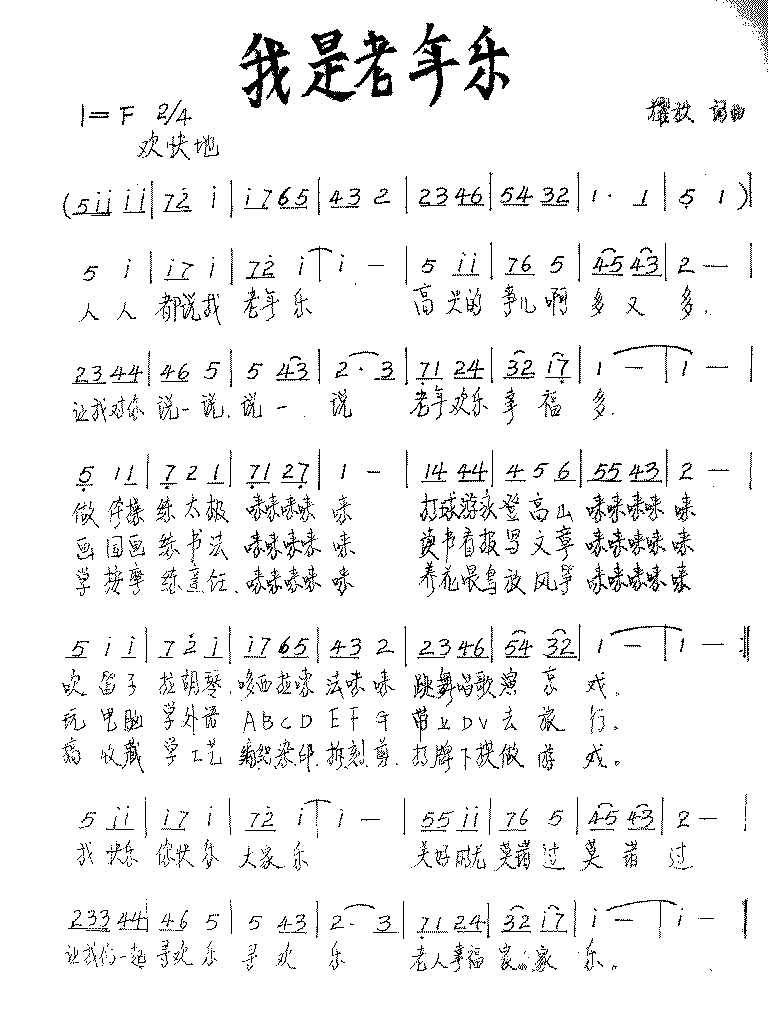 我是老年乐
1=F 2/4
词曲
欢快地
(5ii ii | 72 i | i7 65 | 43 2 | 23 46 | 54 32 | 1· 1 | 5 1 )‖
5 i | i7 i | 72 i | i — | 5 ii | 76 5 | 45 43 | 2 — |
人人 都说我 老年乐 高兴的 事儿啊 多又多.
23 44 | 46 5 | 5 43 | 2· 3 | 71 24 | 32 17 | 1 — | 1 — |
让我对你 说一说, 说一 说 老年欢乐 幸福 多.
5 11 | 7 2 1 | 71 27 | 1 — | 14 44 | 4 5 6 | 55 43 | 2 — |
做体操 练太极 咪咪咪咪 咪 打球游泳 登高山 咪咪咪咪 咪
画国画 练书法 咪咪咪咪 咪 读书看报 写文章 咪咪咪咪 咪
学按摩 练烹饪, 咪咪咪咪 咪 养花喂鸟 放风筝 咪咪咪咪 咪
5 i i | 7 2 i | i7 65 | 43 2 | 23 46 | 54 32 | 1 — | 1 — :‖
吹笛子 拉胡琴, 哆西拉嗦 法咪咪 跳舞唱歌 演京 戏.
玩电脑 学外语 ABCD EFG 带上DV 去旅 行.
搞收藏 学工艺 编织 印, 拆刻剪. 打牌下棋 做游 戏。
5 ii | i7 i | 72 i | i — | 55 ii | 76 5 | 45 43 | 2 — |
我快乐 你快乐 大家乐 美好时光 莫错过 莫错 过
233 44 | 46 5 | 5 43 | 2· 3 | 71 24 | 32 i7 | i — | i — ‖
让我们一起 寻欢乐 寻欢 乐 老人幸福 家家 乐。